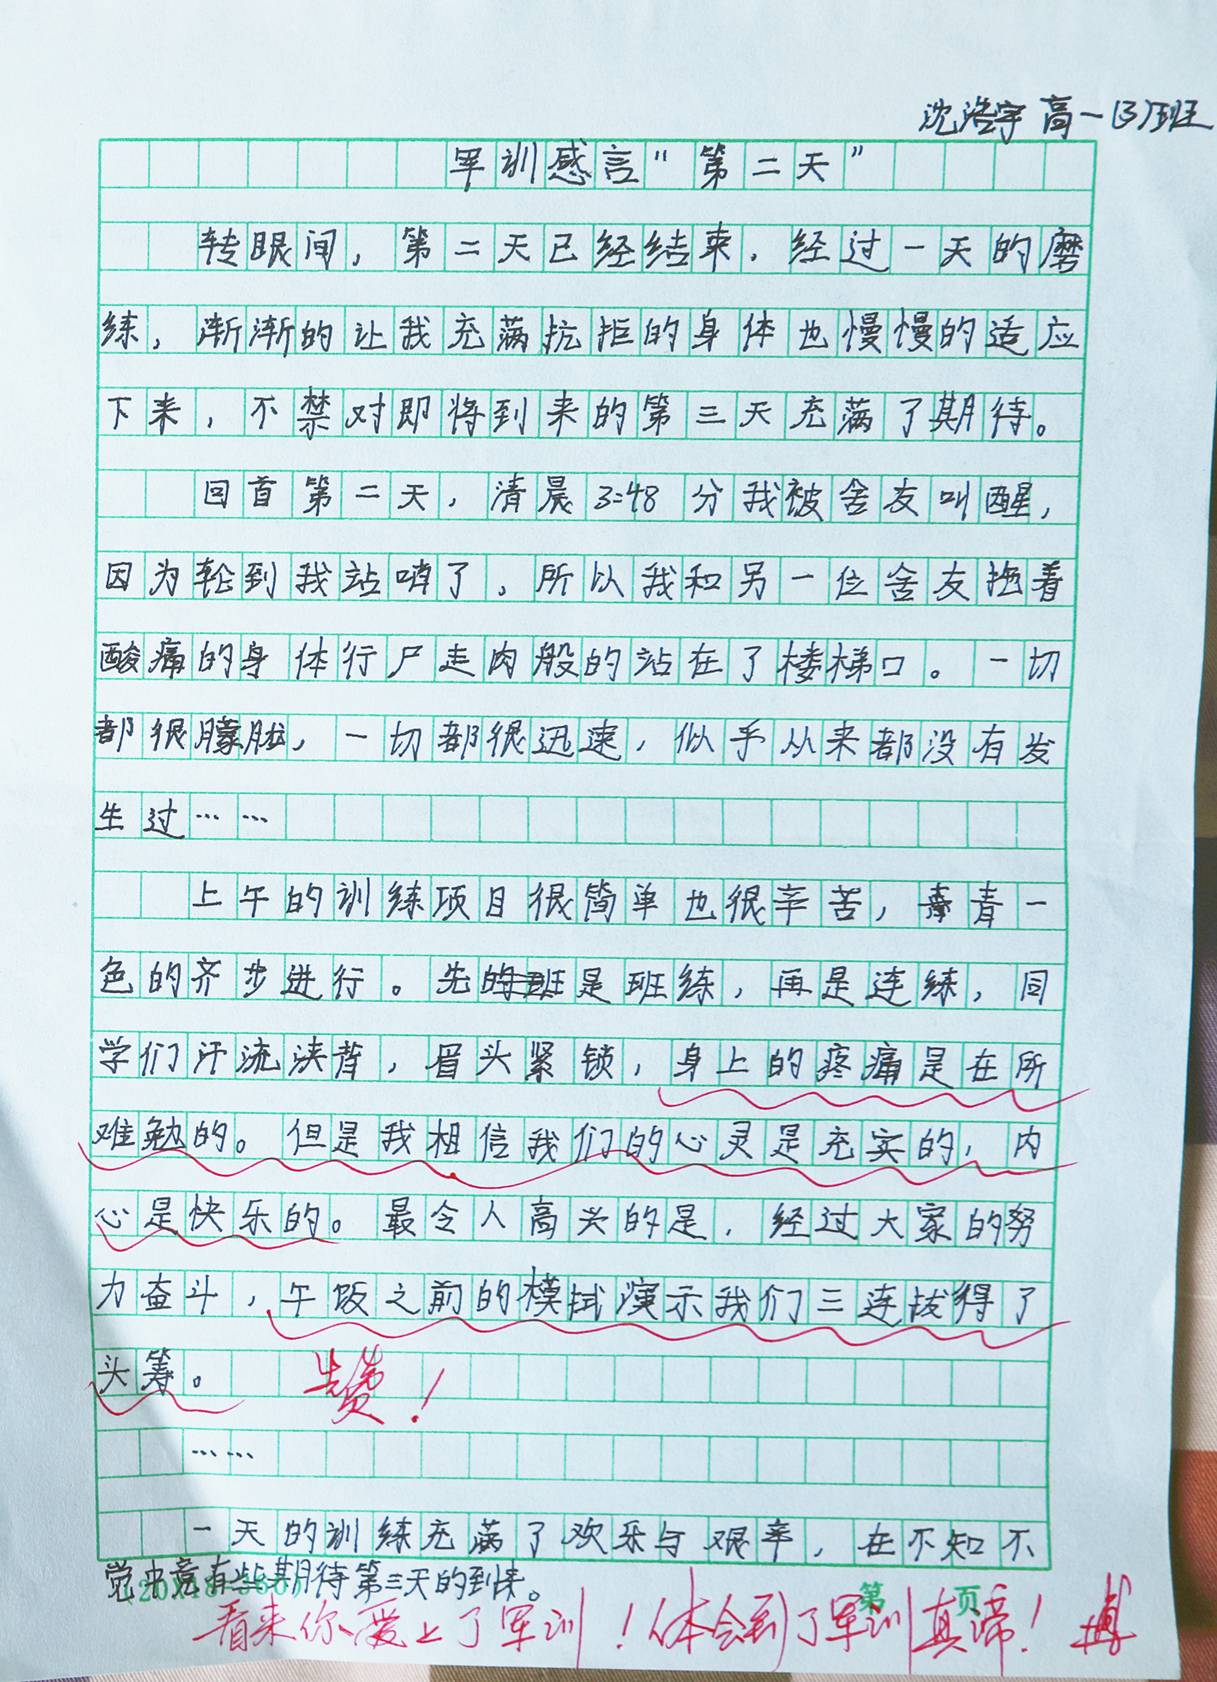 沈浩宇 高一(3)班
军训感言“第二天”
转眼间，第二天已经结束，经过一天的磨
练，渐渐的让我充满抗拒的身体也慢慢的适应
下来，不禁对即将到来的第三天充满了期待。
回首第二天，清晨3:48分我被舍友叫醒，
因为轮到我站哨了，所以我和另一位舍友拖着
酸痛的身体行尸走肉般的站在了楼梯口。一切
都很朦胧，一切都很迅速，似乎从来都没有发
生过……
上午的训练项目很简单也很辛苦，清一
色的齐步进行。先是班练，再是连练，同
学们汗流浃背，眉头紧锁，身上的疼痛是在所
难勉的。但是我相信我们的心灵是充实的，内
心是快乐的。最令人高兴的是，经过大家的努
力奋斗，午饭之前的模拭演示我们三连拔得了
头筹。 赞！
……
一天的训练充满了欢乐与艰辛，在不知不
觉中竟有些期待第三天的到来。
(20×18=360) 第 页
看来你爱上了军训！体会到了军训真谛！